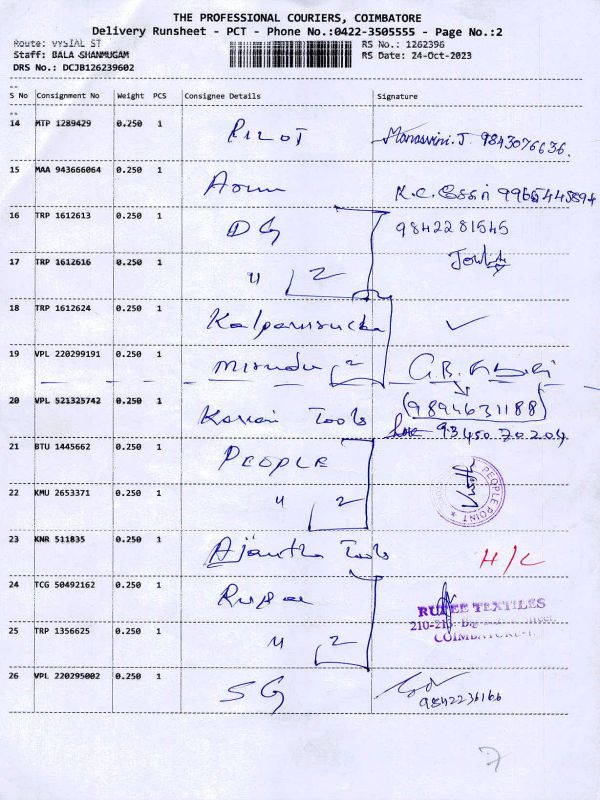 THE PROFESSIONAL COURIERS, COIMBATORE
Delivery Runsheet - PCT - Phone No.:0422-3505555 - Page No.:2
Route: VYSIAL ST RS No.: 1262396
Staff: BALA SHANMUGAM RS Date: 24-Oct-2023
DRS No.: DCJB126239602
S No Consignment No Weight PCS Consignee Details Signature
14 MTP 1289429 0.250 1 PILOT Manasvini.J 9843076636.
15 MAA 943666064 0.250 1 K.C.
16 TRP 1612613 0.250 1 DG 9842281545
17 TRP 1612616 0.250 1 " 2
18 TRP 1612624 0.250 1 ✓
19 VPL 220299191 0.250 1 2 G.B.
20 VPL 521325742 0.250 1 Tools (9894631188)
9345070204
21 BTU 1445662 0.250 1 PEOPLE PEOPLE POINT
22 KMU 2653371 0.250 1 " 2
23 KNR 511835 0.250 1 Ajantha Tools H/C
24 TCG 50492162 0.250 1 Rupee RUPEE TEXTILES
25 TRP 1356625 0.250 1 " 2 COIMBATORE-1.
26 VPL 220295002 0.250 1 SG 9842236166
7